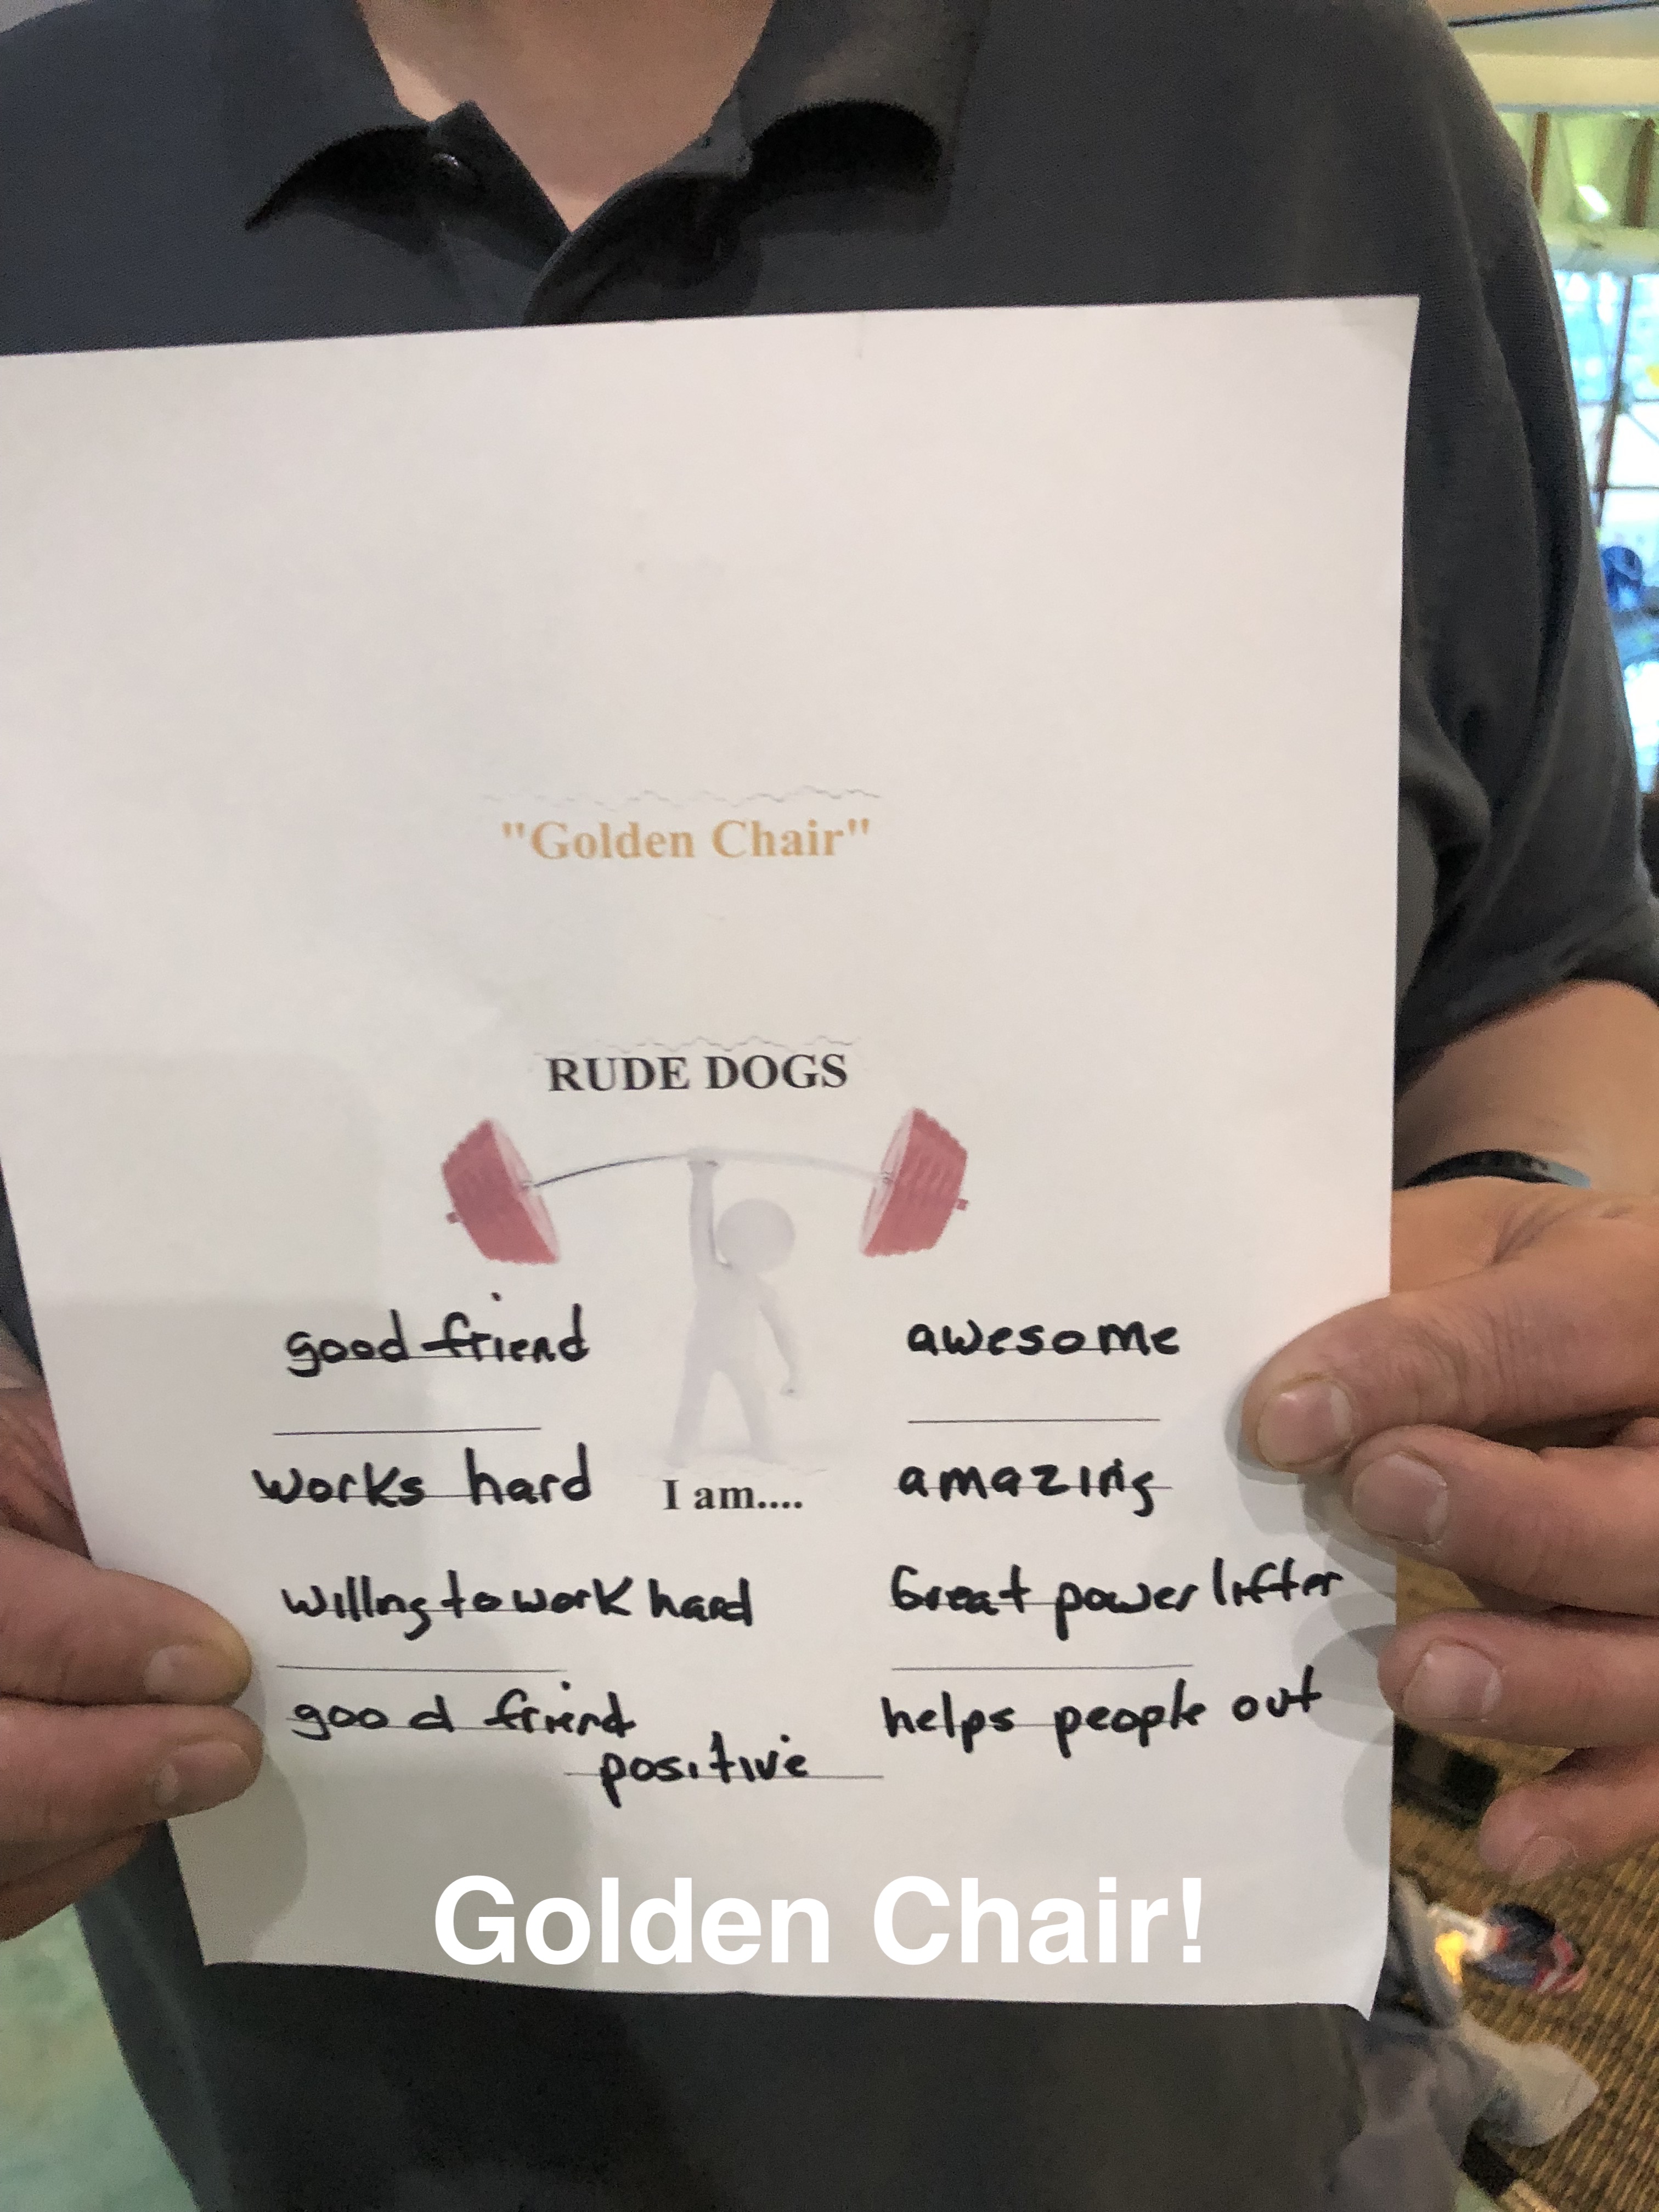 "Golden Chair"
RUDE DOGS
good friend
awesome
works hard
I am....
amazing
willing to work hard
Great power lifter
good friend
helps people out
positive
Golden Chair!